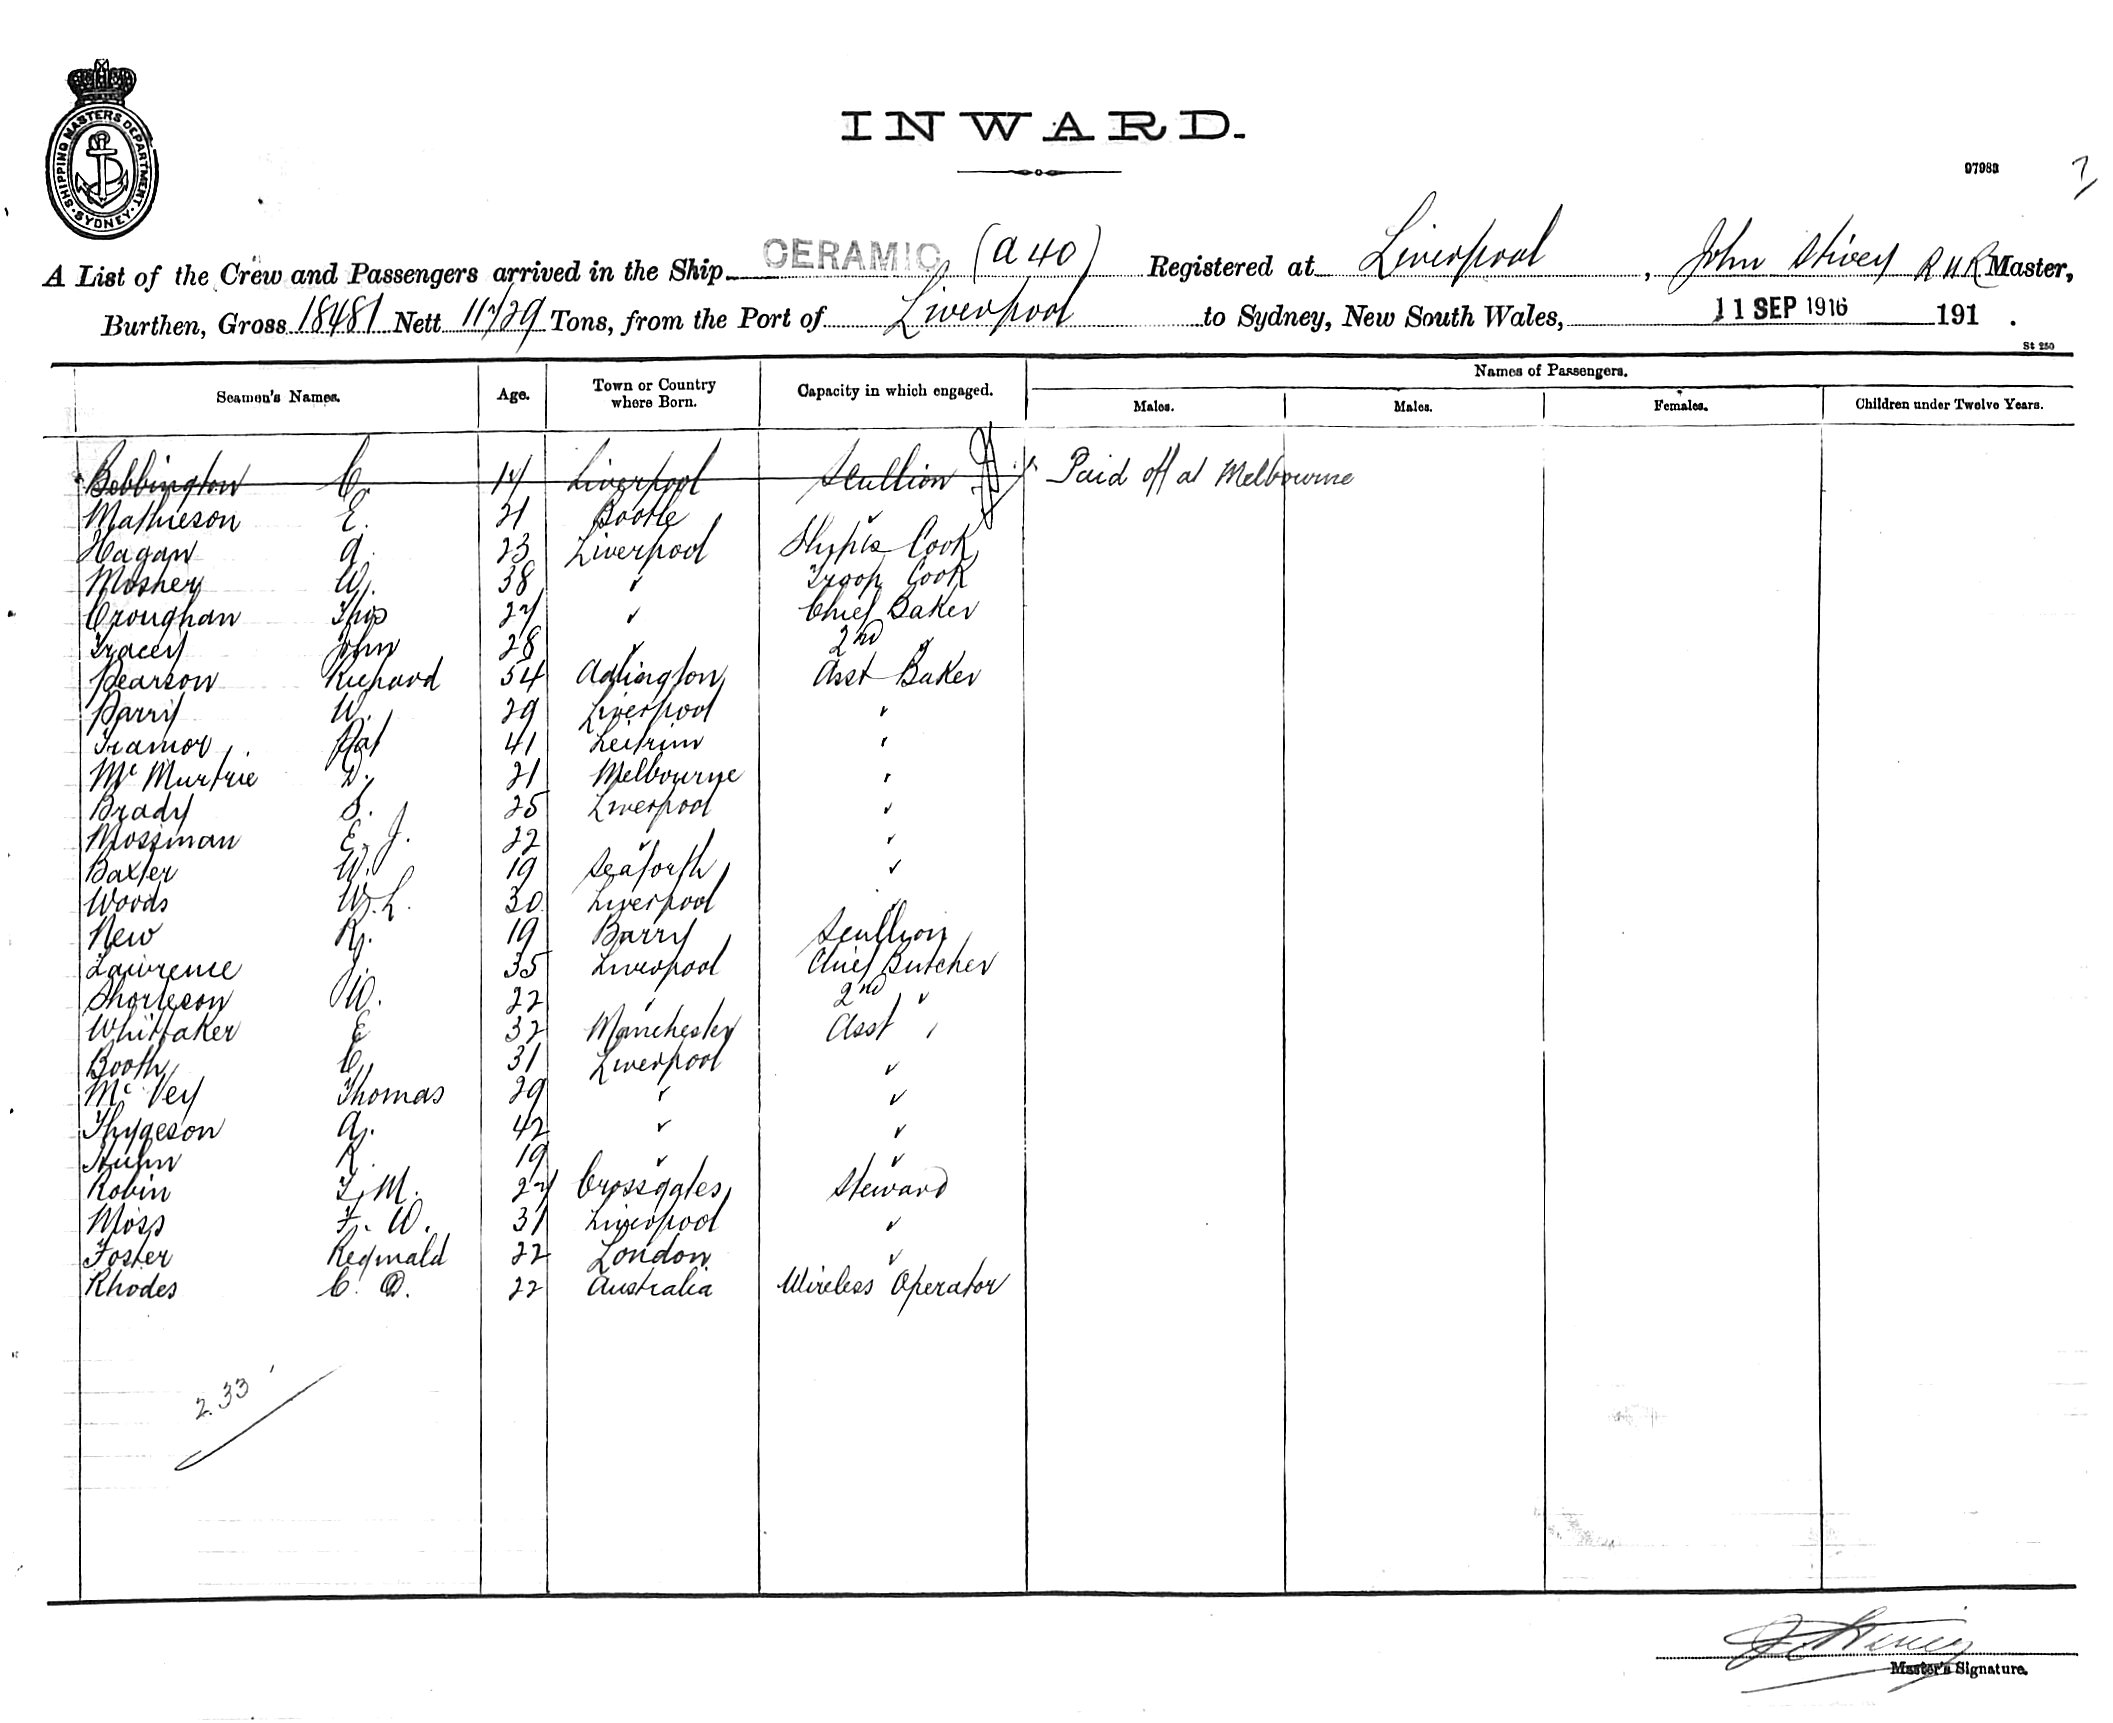 SHIPPING MASTERS DEPARTMENT. SYDNEY.
INWARD.
97983
A List of the Crew and Passengers arrived in the Ship CERAMIC (A 40) Registered at Liverpool, John Stivey R N R Master,
Burthen, Gross 18481 Nett 11729 Tons, from the Port of Liverpool to Sydney, New South Wales, 11 SEP 1916 191 .
St 250
Seamen's Names. Age. Town or Country where Born. Capacity in which engaged. Names of Passengers.
Males. Males. Females. Children under Twelve Years.
Bebbington C. 17 Liverpool Scullion Paid off at Melbourne
Mathieson E. 21 Bootle "
Hagan A. 23 Liverpool Ship's Cook
Mosner W. 38 " Troop Cook
Croughan Thos 27 " Chief Baker
Tracey John 28 " 2nd "
Pearson Richard 54 Adlington Asst Baker
Parry W. 29 Liverpool "
Tramor Pat 41 Leitrim "
Mc Murtrie D. 21 Melbourne "
Brady S. 25 Liverpool "
Mossman E. J. 22 " "
Baxter W. 19 Seaforth "
Woods W. L. 30 Liverpool "
New R. 19 Barry Scullion
Lawrence W. 35 Liverpool Chief Butcher
Shorleson W. 22 " 2nd "
Whittaker E 32 Manchester Asst "
Booth C. 31 Liverpool "
Mc Vey Thomas 29 " "
Thygeson A. 42 " "
R. 19 " "
Robin F. M. 27 Crossgates Steward
Moss F. W. 31 Liverpool "
Foster Reginald 22 London "
Rhodes C. D. 22 Australia Wireless Operator
233
Master's Signature.